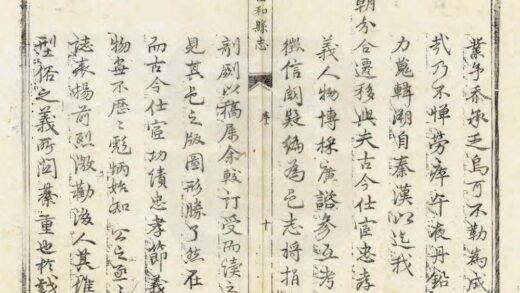 業予忝承乏烏可不勤為成
哉乃不憚勞瘁午夜丹鉛
力蒐輯溯自秦漢以迄我
朝分合遷移與夫古今仕宦忠孝
義人物博採廣諮參互考
徵信闕疑編為邑志將捐
和縣志
十
剞劂以稿屬余較訂受而讀之
見其邑之版圖形勝了然在
而古今仕宦功績忠孝節義
物無不歷〻彪炳始知公之亟〻
誌表揚前烈激勸後人其維
型俗之義所関綦重也於戲